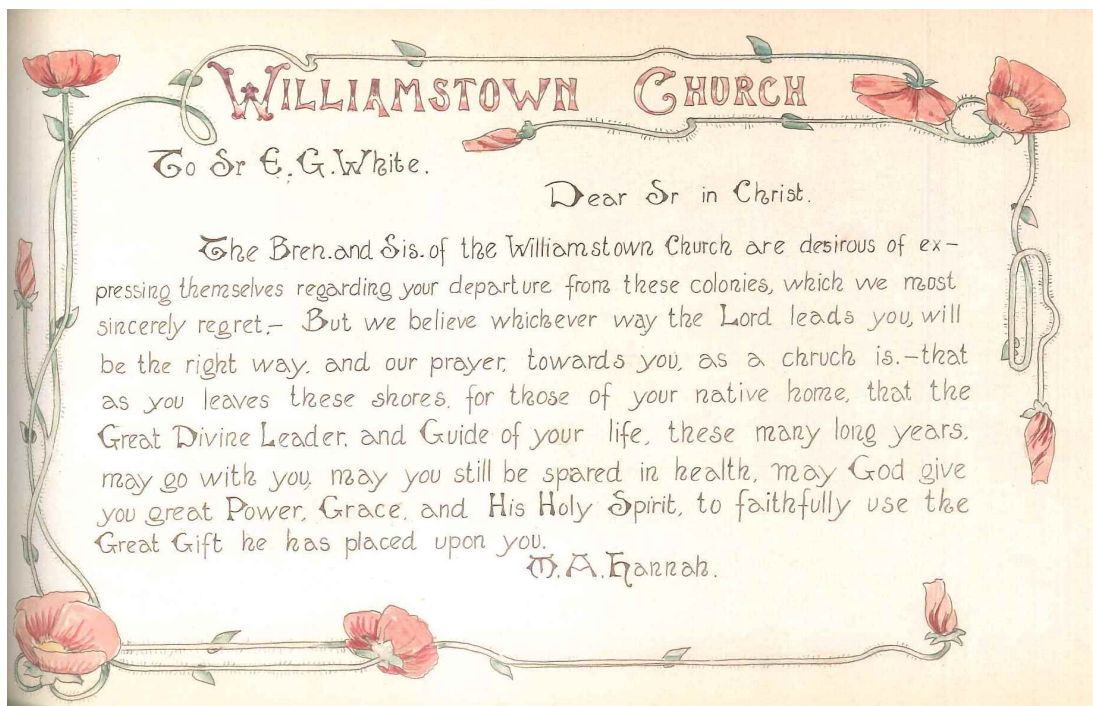 WILLIAMSTOWN CHURCH
To Sr E. G. White.
Dear Sr in Christ.
The Bren. and Sis. of the Williamstown Church are desirous of ex-
pressing themselves regarding your departure from these colonies, which we most
sincerely regret.- But we believe whichever way the Lord leads you, will
be the right way, and our prayer, towards you, as a chruch is.-that
as you leaves these shores, for those of your native home, that the
Great Divine Leader, and Guide of your life, these many long years,
may go with you, may you still be spared in health, may God give
you great Power, Grace, and His Holy Spirit, to faithfully use the
Great Gift he has placed upon you.
M. A. Hannah.